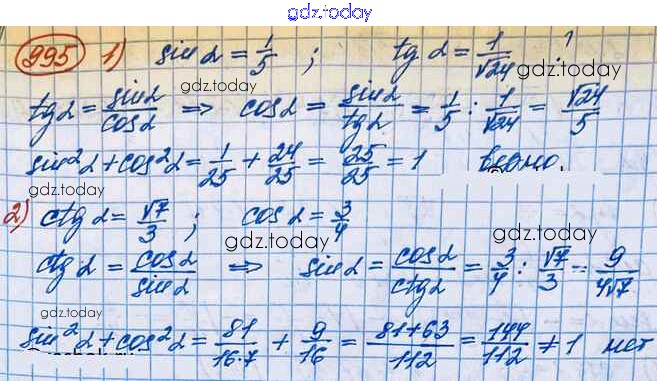 gdz.today
995 1) sin α = 1/5 ; tg α = 1/√24 ?
gdz.today gdz.today
tg α = sin α/cos α => cos α = sin α/tg α = 1/5 : 1/√24 = √24/5
sin²α + cos²α = 1/25 + 24/25 = 25/25 = 1 верно.
gdz.today
2) ctg α = √7/3 ; cos α = 3/4
gdz.today
ctg α = cos α/sin α => sin α = cos α/ctg α = 3/4 : √7/3 = 9/4√7
gdz.today gdz.today
sin²α + cos²α = 81/16·7 + 9/16 = 81+63/112 = 144/112 ≠ 1 нет